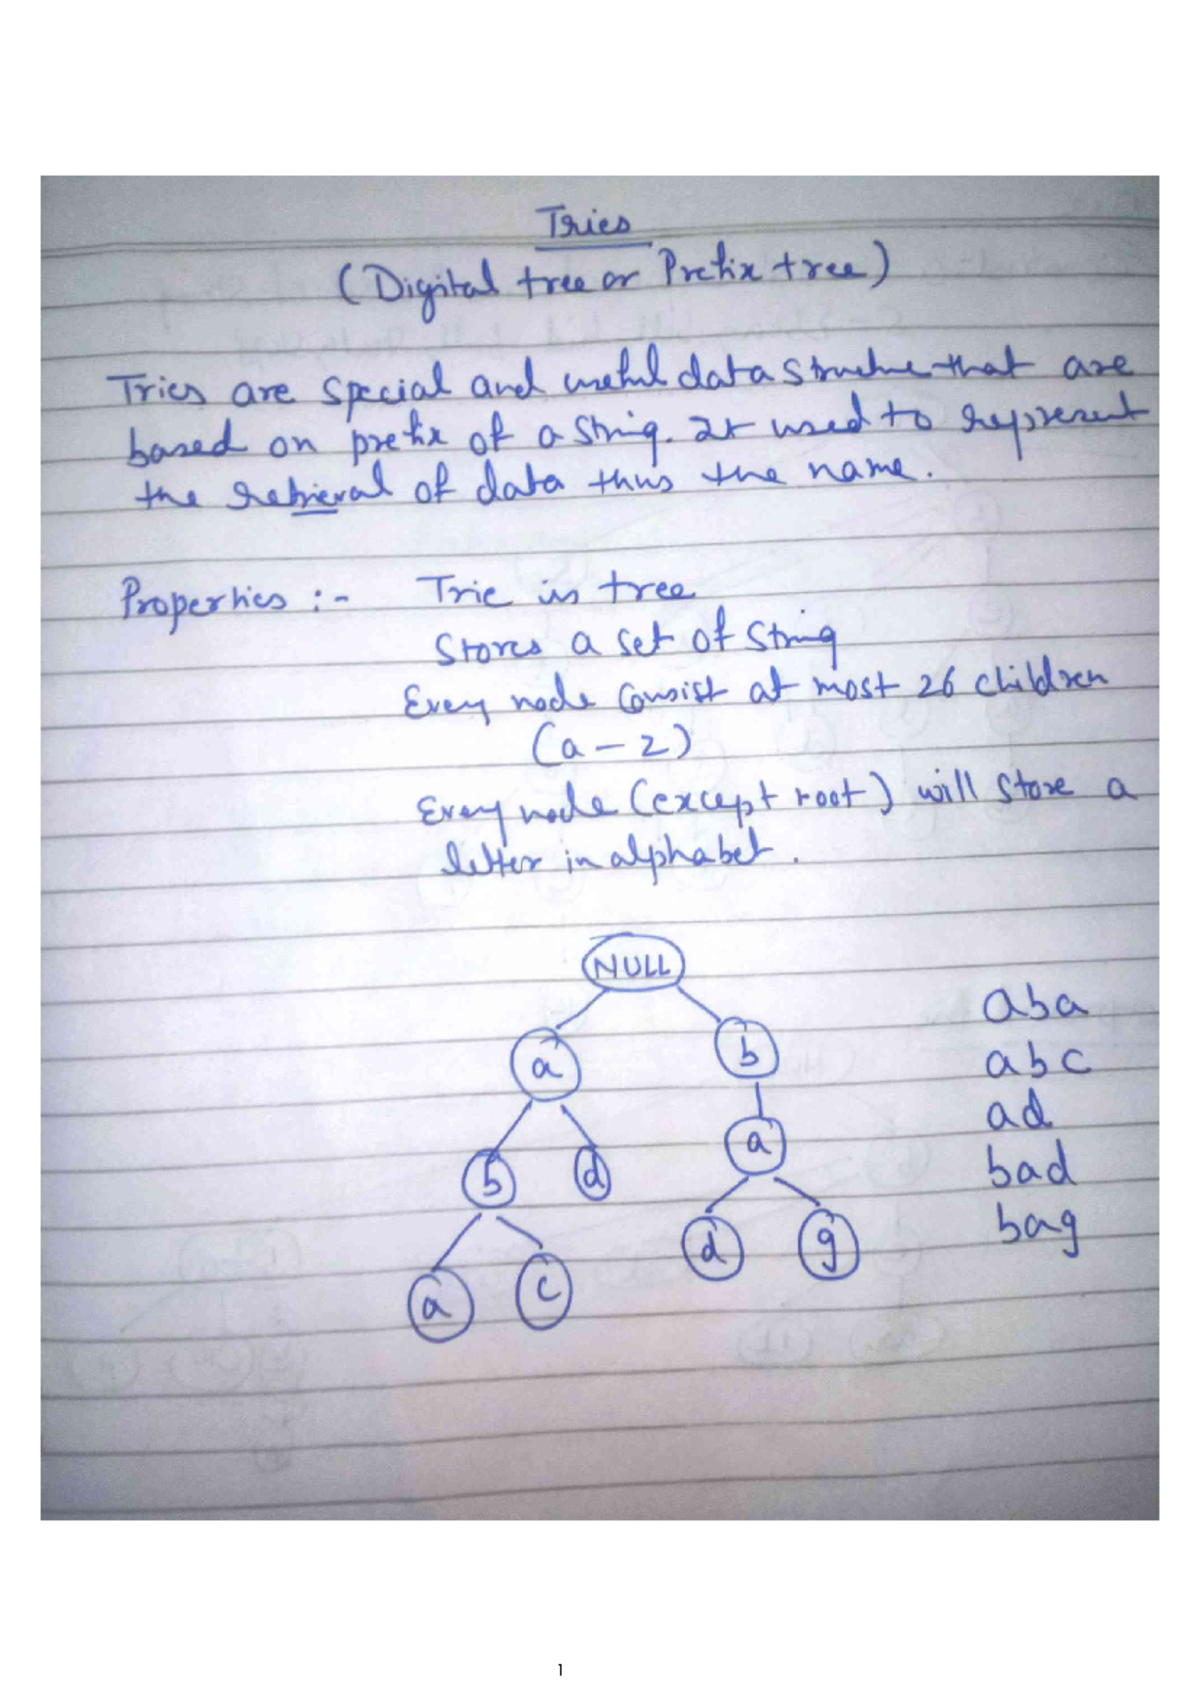 Tries
(Digital tree or Prefix tree)
Tries are special and useful data structure that are
based on prefix of a string. It used to represent
the retrieval of data thus the name.
Properties :- Trie is tree
Stores a set of string
Every node consist at most 26 children
(a - z)
Every node (except root) will store a
letter in alphabet.
NULL
a b
b d a
a c d g
aba
abc
ad
bad
bag
1